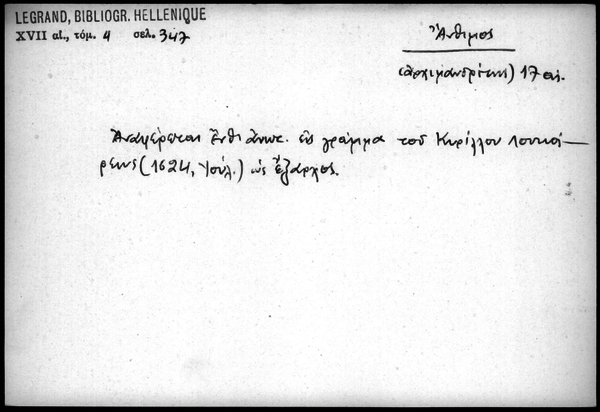 LEGRAND, BIBLIOGR. HELLENIQUE
XVII αἰ., τόμ. 4 σελ. 347
Ἄνθιμος
(ἀρχιμανδρίτης) 17 αἰ.
Ἀναφέρεται ἔνθ' ἀνωτ. εἰς γράμμα τοῦ Κυρίλλου Λουκά-
ρεως (1624, Ἰούλ.) ὡς ἔξαρχος.